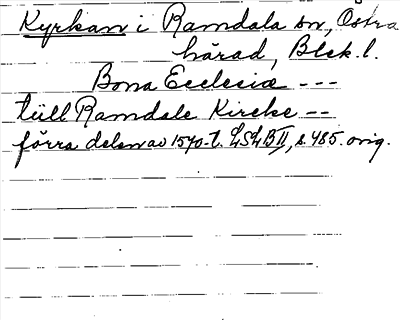 Kyrkan i Ramdala sn, Östra
härad, Blek. l.
Bona Ecclesiæ ---
tüll Ramdale Kircke --
förra delen av 1570-t. LSLB II, s. 485. orig.